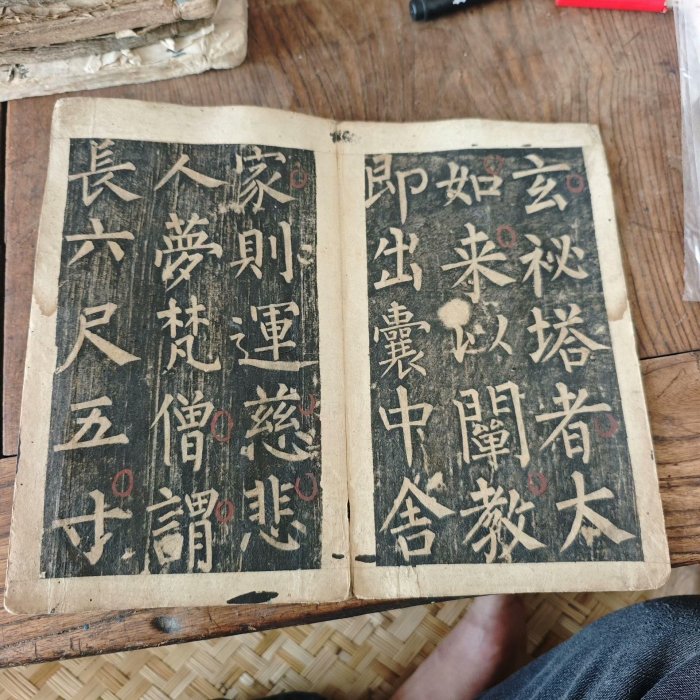 玄祕塔者太
如来以闡教
即出囊中舍
家則運慈悲
人夢梵僧謂
長六尺五寸